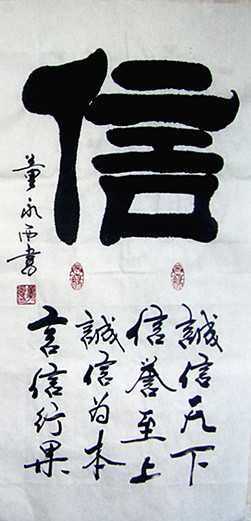 信
誠信天下
信譽至上
誠信為本
言信行果
董永西書